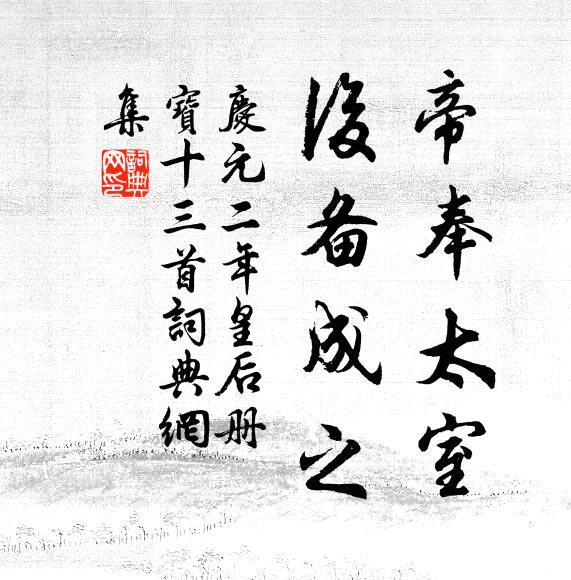 帝奉太室
後备成之
慶元二年皇后册
寶十三首詞典網
集
詞典网印